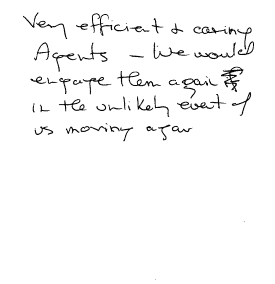 Very efficient & caring
Agents - We would
engage them again
in the unlikely event of
us moving again